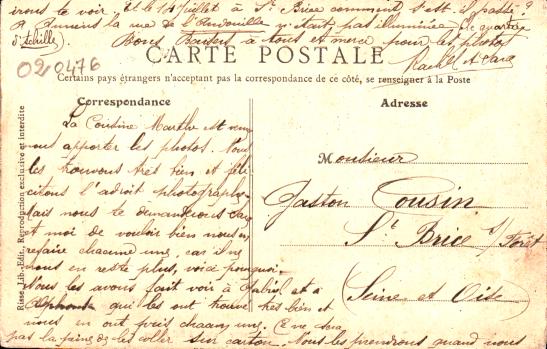 irons te voir. Et le 14 Juillet à St Brice comment s'est-il passé ?
A Amiens la rue de l'Andouille n'était pas illuminée, le quartier
d'Achille. Bons Baisers à tous et merci pour les photos
Rachel et
CARTE POSTALE
020476
Certains pays étrangers n'acceptant pas la correspondance de ce côté, se renseigner à la Poste
Correspondance
La Cousine Marthe est venue
nous apporter les photos. Nous
les trouvons très bien et féli
citons l'adroit photographe.
Mais nous te demanderons
et moi de vouloir bien nous en
refaire chacune une, car il ne
nous en reste plus, voici pourquoi.
Nous les avons fait voir à et à
qui les ont trouvé très bien et
nous en ont pris chacun une. Ce ne sera
pas la peine de les coller sur carton. Nous les prendrons quand nous
Adresse
Monsieur
Gaston Cousin
St Brice s/ Forêt
(Seine et Oise)
Risse Lib.-Edit., Reproduction exclusive et interdite